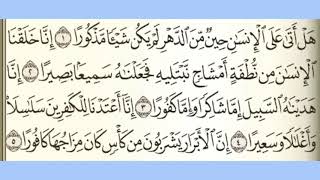 هَلْ أَتَىٰ عَلَى الْإِنسَٰنِ حِينٌ مِّنَ الدَّهْرِ لَمْ يَكُن شَيْـًٔا مَّذْكُورًا ١ إِنَّا خَلَقْنَا
الْإِنسَٰنَ مِن نُّطْفَةٍ أَمْشَاجٍ نَّبْتَلِيهِ فَجَعَلْنَٰهُ سَمِيعًۢا بَصِيرًا ٢ إِنَّا
هَدَيْنَٰهُ السَّبِيلَ إِمَّا شَاكِرًا وَإِمَّا كَفُورًا ٣ إِنَّآ أَعْتَدْنَا لِلْكَٰفِرِينَ سَلَٰسِلَا۟
وَأَغْلَٰلًا وَسَعِيرًا ٤ إِنَّ الْأَبْرَارَ يَشْرَبُونَ مِن كَأْسٍ كَانَ مِزَاجُهَا كَافُورًا ٥